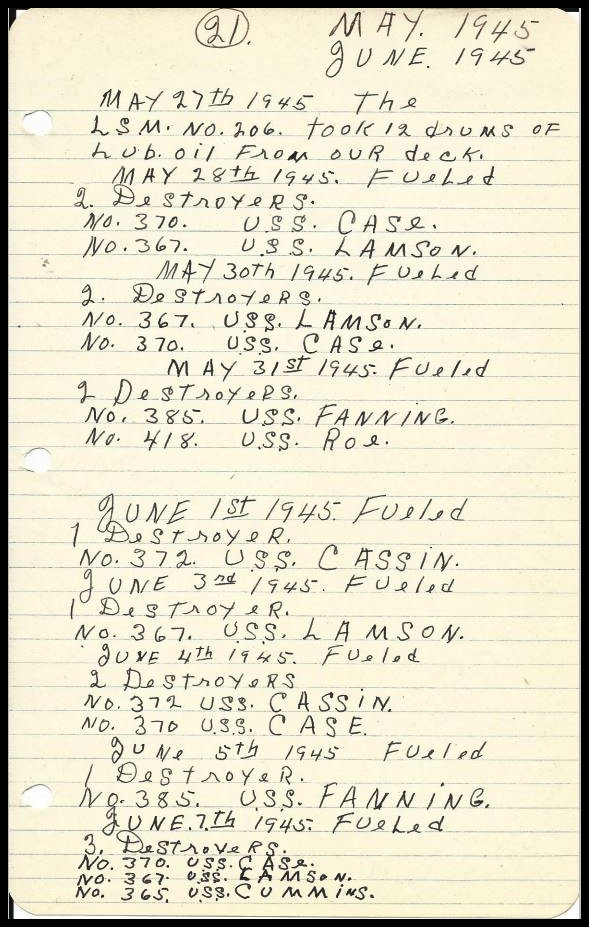 21.
MAY. 1945
JUNE. 1945
MAY 27th 1945 The
L.S.M. NO. 206. took 12 drums OF
Lub. oil From our deck.
MAY 28th 1945. Fueled
2. Destroyers.
No. 370. U.S.S. CASe.
No. 367. U.S.S. LAMSON.
MAY 30th 1945. Fueled
2. Destroyers.
No. 367. U.S.S. LAMSON.
No. 370. U.S.S. CASe.
MAY 31st 1945. Fueled
2 Destroyers.
No. 385. U.S.S. FANNING.
No. 418. U.S.S. Roe.
JUNE 1st 1945. Fueled
1 Destroyer.
No. 372. U.S.S. CASSIN.
JUNE 3rd 1945. Fueled
1 Destroyer.
No. 367. U.S.S. LAMSON.
JUNE 4th 1945. Fueled
2 Destroyers
No. 372 U.S.S. CASSIN.
No. 370 U.S.S. CASE.
JUNe 5th 1945 Fueled
1 Destroyer.
No. 385. U.S.S. FANNING.
JUNE. 7.th 1945. Fueled
3. Destroyers.
No. 370. U.S.S. CASe.
No. 367. U.S.S. LAMSON.
No. 365. U.S.S. CUMMINS.